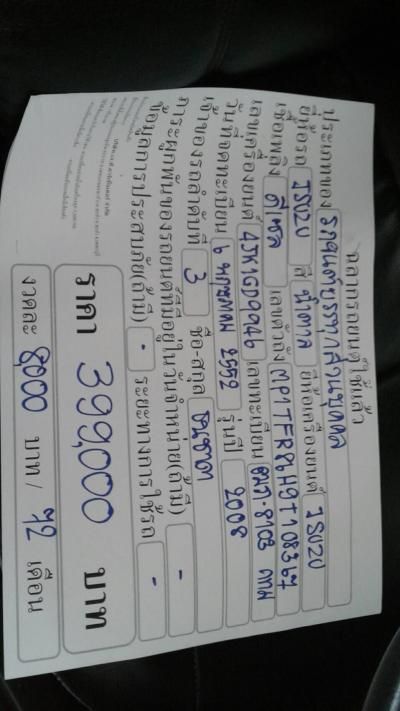 ฉลากรถยนต์ใช้แล้ว
ประเภทของ รถยนต์บรรทุกส่วนบุคคล
ยี่ห้อรถ ISUZU สี น้ำตาล ยี่ห้อเครื่องยนต์ ISUZU
เชื้อเพลิง ดีเซล เลขตัวถัง MP1TFR86H9T108367
เลขเครื่องยนต์ 4JK1GD9946 เลขทะเบียน
วันที่จดทะเบียน 6 พฤษภาคม 2552 รุ่นปี 2008
เจ้าของรถลำดับที่ 3 ชื่อ-สกุล
ภาระผูกพันของรถยนต์ที่มีอยู่ในวันจำหน่าย(ถ้ามี) -
ข้อมูลการประสบภัย(ถ้ามี) - ระยะทางการใช้รถ -
ราคา 399,000 บาท
งวดละ 8,000 บาท/ 72 เดือน